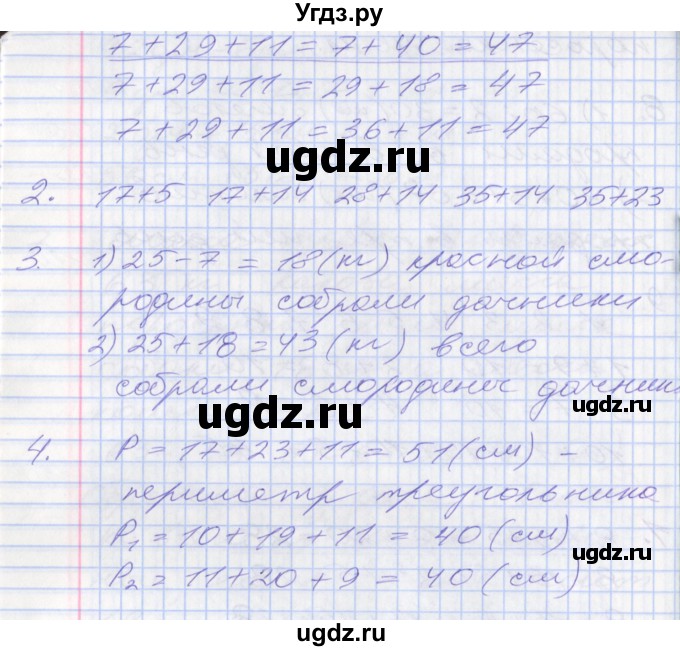 Угдз.ру
7+29+11=7+40=47
7+29+11=29+18=47
7+29+11=36+11=47
ugdz.ru
2. 17+5 17+14 28+14 35+14 35+23
3. 1) 25-7=18(кг) красной смо-
родины собрали дачники
2) 25+18=43(кг) всего
собрали смородины дачник
ugdz.ru
ugdz.ru
4. P=17+23+11=51(см) -
периметр треугольника
P1=10+19+11=40(см)
P2=11+20+9=40(см)
ugdz.ru
ugdz.ru